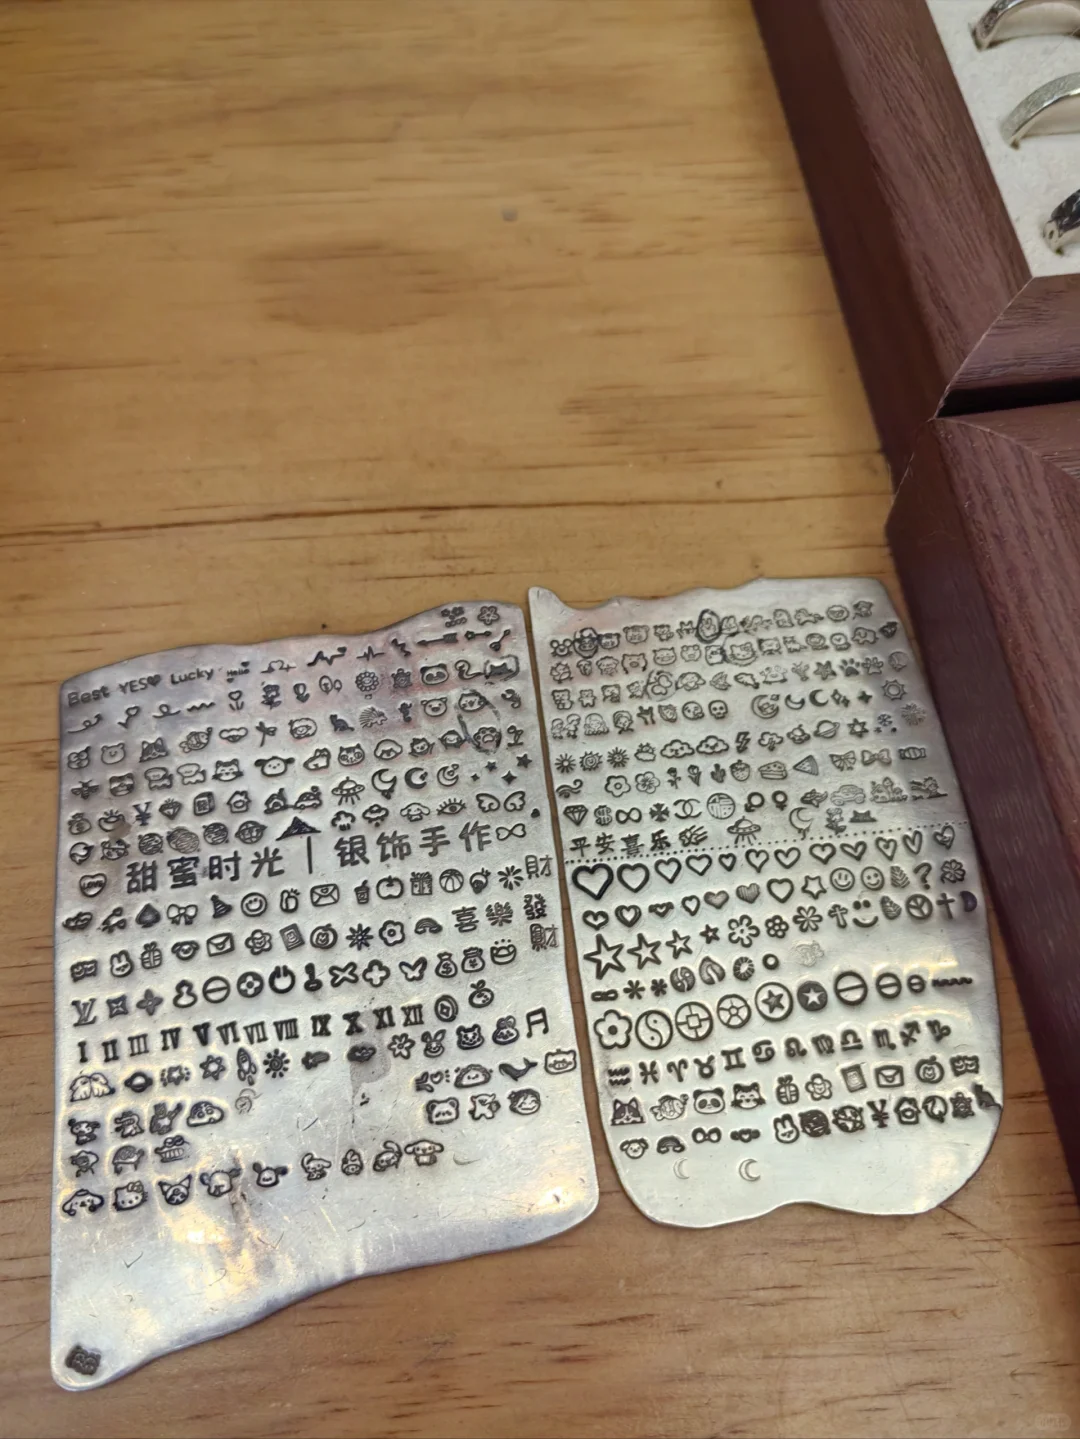 Best YES♥ Lucky
甜蜜时光｜银饰手作
財
喜樂發
財
I II III IV V VI VII VIII IX X XI XII
平安喜乐